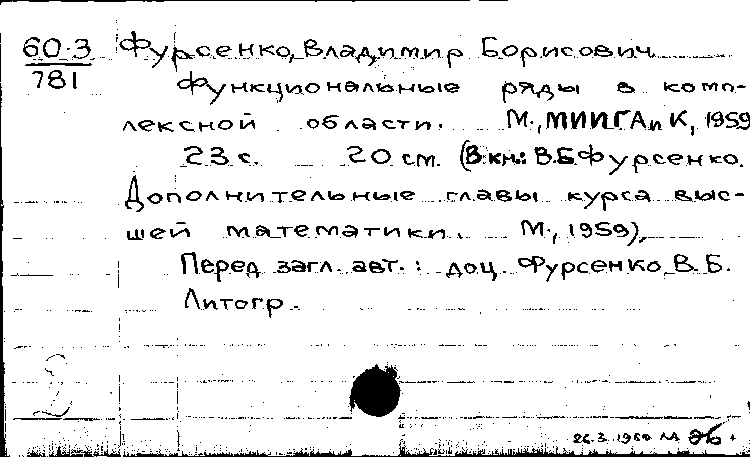 60·3
781
Фурсенко, Владимир Борисович
Функциональные ряды в комп-
лексной области. М., МИИГАиК, 1959
23 с. 20 см. (В кн.: В.Б Фурсенко.
Дополнительные главы курса выс-
шей математики. М., 1959),
Перед загл. авт.: доц. Фурсенко В. Б.
Литогр.
2